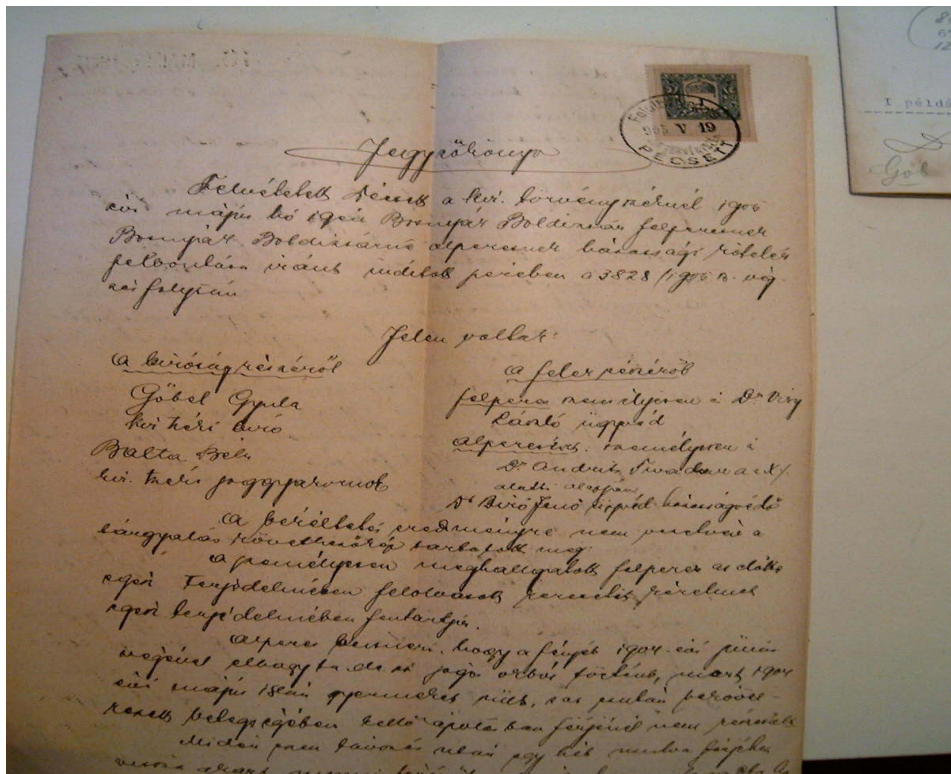 Jegyzőkönyv
Felvétetett Pécsett a kir. törvényszéknél 1905
évi május hó 19én Bosnyák Boldizsár felperesnek
Bosnyák Boldizsárné alperesnek házassági kötelék
felbontása iránt indított perében a 3828/1905 n. vég-
zés folytán
Jelen voltak:
A bíróság részéről
Göbel Gyula
kir. tszéki bíró
Balta Béla
kir. tszéki jeggyakornok
A felek részéről
felperes személyesen és Dr
László ügyvéd
alperes személyesen és
Dr Andrits Tivadar a X/.
alatti alapján
Dr Biró Jenő ügyvéd házasságvédő
A békéltetés eredményre nem vezetvén a
tárgyalás következőkép tartatott meg
A személyesen meghallgatott felperes az előtte
egész terjedelmében felolvasott keresetét
egész terjedelmében fentartja.
Alperes beismeri, hogy a férjét 1904 évi június
végével elhagyta de ez jogos okból történt, mert 1904
évi május 18án gyermeket szült, s az után bekövet-
kezett betegségében kellő ápolásban férjénél nem részesült
Midőn ezen távozás után egy hét múlva férjéhez
PÉCSETT
V 19
I péld
Göb